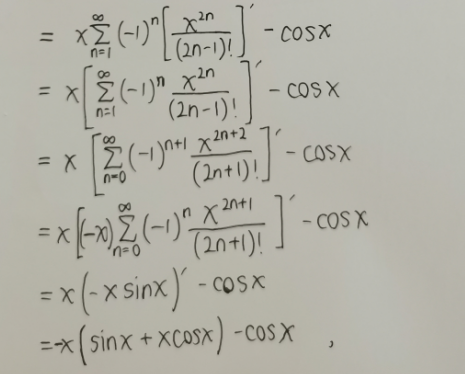 = x∑_{n=1}^{∞} (-1)^n [x^{2n}/(2n-1)!]′ - cosx
= x[∑_{n=1}^{∞} (-1)^n x^{2n}/(2n-1)!]′ - cosx
= x [∑_{n=0}^{∞} (-1)^{n+1} x^{2n+2}/(2n+1)!]′ - cosx
= x[(-x)∑_{n=0}^{∞} (-1)^n x^{2n+1}/(2n+1)!]′ - cosx
= x(-x sinx)′ - cosx
=-x(sinx + xcosx) - cosx ,